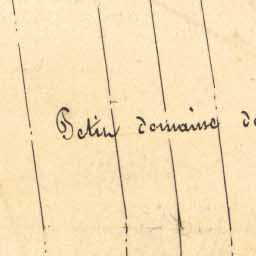 Petit domaine de